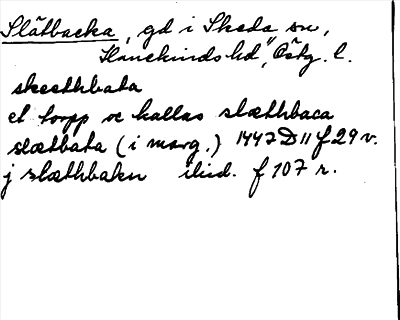 Slätbacka, gd i Skeda sn,
Hanekinds hd, Östg. l.
skecthbata
et torpp oc kallas slæthbaca
slætbata (i marg.) 1447 D 11 f 29 v.
j slæthbakn ibid. f 107 r.